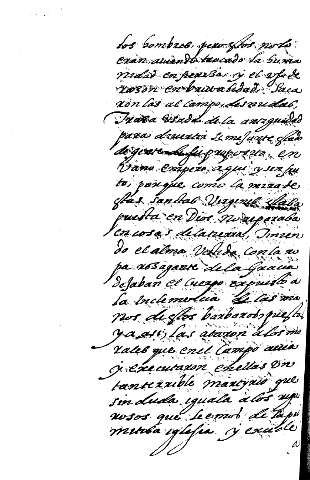 los hombres, pero estos no lo
eran aviendo trocado la huma
nidad en pereza y el uso de
razon en brutalidad. Saca
ronlas al campo desnudas,
Traza usada de la antiguedad
para divertir semejante
en
vano empero aqui y sin fru
to, porque como la mira de
estas santas Virgenes
puesta en Dios no reparaba
en cosas de la tierra, Tinien
do el alma vestida con la ro
pa rozagante de la Gracia
dejaban el cuerpo expuesto a
la inclemencia de las ma
nos de estos barbaros, puestas
ya assi las ataron a los mo
rales que en el Campo avia
y executaron en ellas un
tan terrible martyrio que
sin duda iguala a los rigu
rosos que leemos de la pri
mitiba iglesia y excede